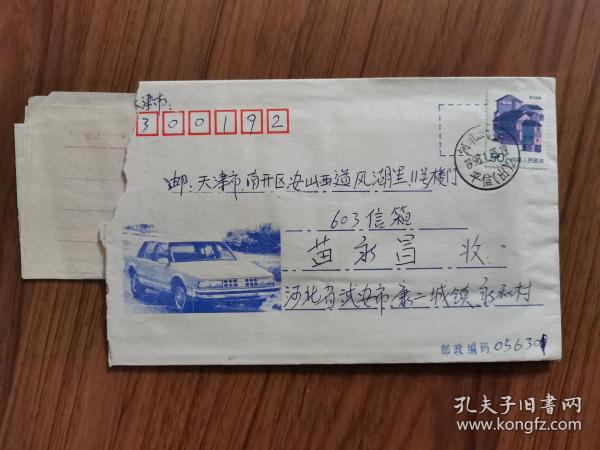 津市:
300192
邮:天津市南开区安山西道风湖里11号楼门
603信箱
苗永昌 收
河北省武安市康二城镇永和村
邮政编码 056301
中国人民邮政
孔夫子旧书网
www.kongfz.com